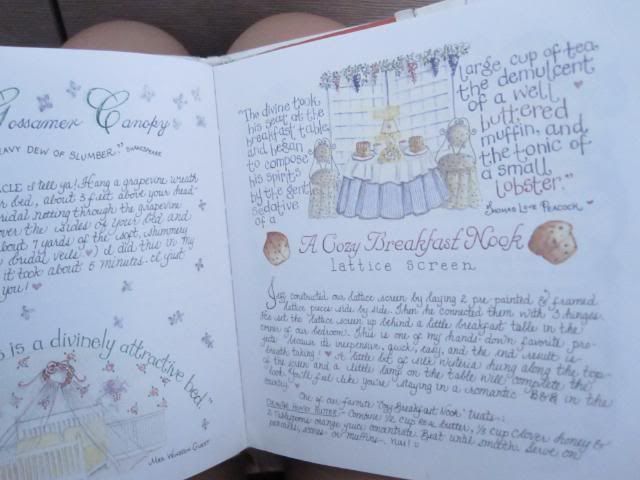 Gossamer Canopy
EAVY DEW OF SLUMBER." SHAKESPEARE
ACLE I tell ya! Hang a grapevine wreath
r bed, about 3 feet above your head-
ridal netting through the grapevine
over the sides of your bed and
about 7 yards of the soft, shimmery
bridal veils ♥) I did this in my
it took about 5 minutes. I just
you! ♥
is is a divinely attractive bed."
MRS. WINSTON GUEST
"The divine took
his seat at the
breakfast table,
and began
to compose
his spirits
by the gentle
sedative
of a
large cup of tea,
the demulcent
of a well
buttered
muffin, and
the tonic of
a small
lobster."
Thomas Love Peacock ♥
A Cozy Breakfast Nook
lattice screen
constructed our lattice screen by laying 2 pre-painted & framed
lattice pieces side by side. Then he connected them with 3 hinges.
We set the lattice screen up behind a little breakfast table in the
corner of our bedroom. This is one of my hands-down favorite pro-
jects because it's inexpensive, quick, easy, and the end result is
breath taking! ♥ A little bit of silk wisteria hung along the top
of the screen and a little lamp on the table will complete the
look. You'll feel like you're staying in a romantic B&B in the
country ♥
One of our favorite "Cozy Breakfast Nook" treats:
Honey Butter - Combine 1/2 cup butter, 1/2 cup clover honey &
2 tablespoons orange juice concentrate. Beat until smooth. Serve on
pancakes, scones or muffins.